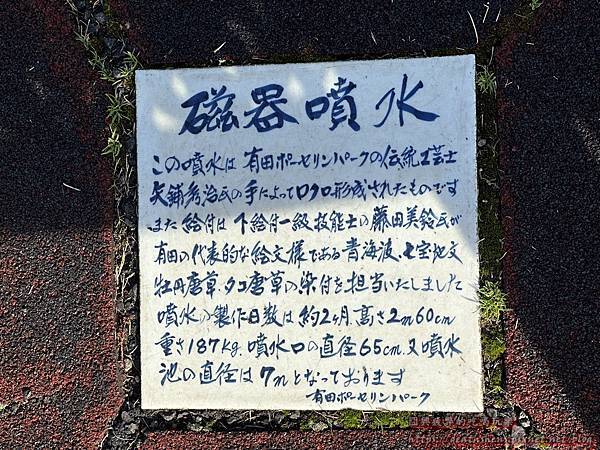 磁器噴水
この噴水は 有田ポーセリンパークの伝統工芸士
矢鋪秀治氏の手によってロクロ形成されたものです
また 絵付は 下絵付一級技能士の藤田美鈴氏が
有田の代表的な絵文様である青海波、七宝地文
牡丹唐草、タコ唐草の染付を担当いたしました
噴水の製作日数は 約2ヶ月、高さ2m60cm
重さ187kg、噴水口の直径65cm、又噴水
池の直径は7mとなっております
有田ポーセリンパーク